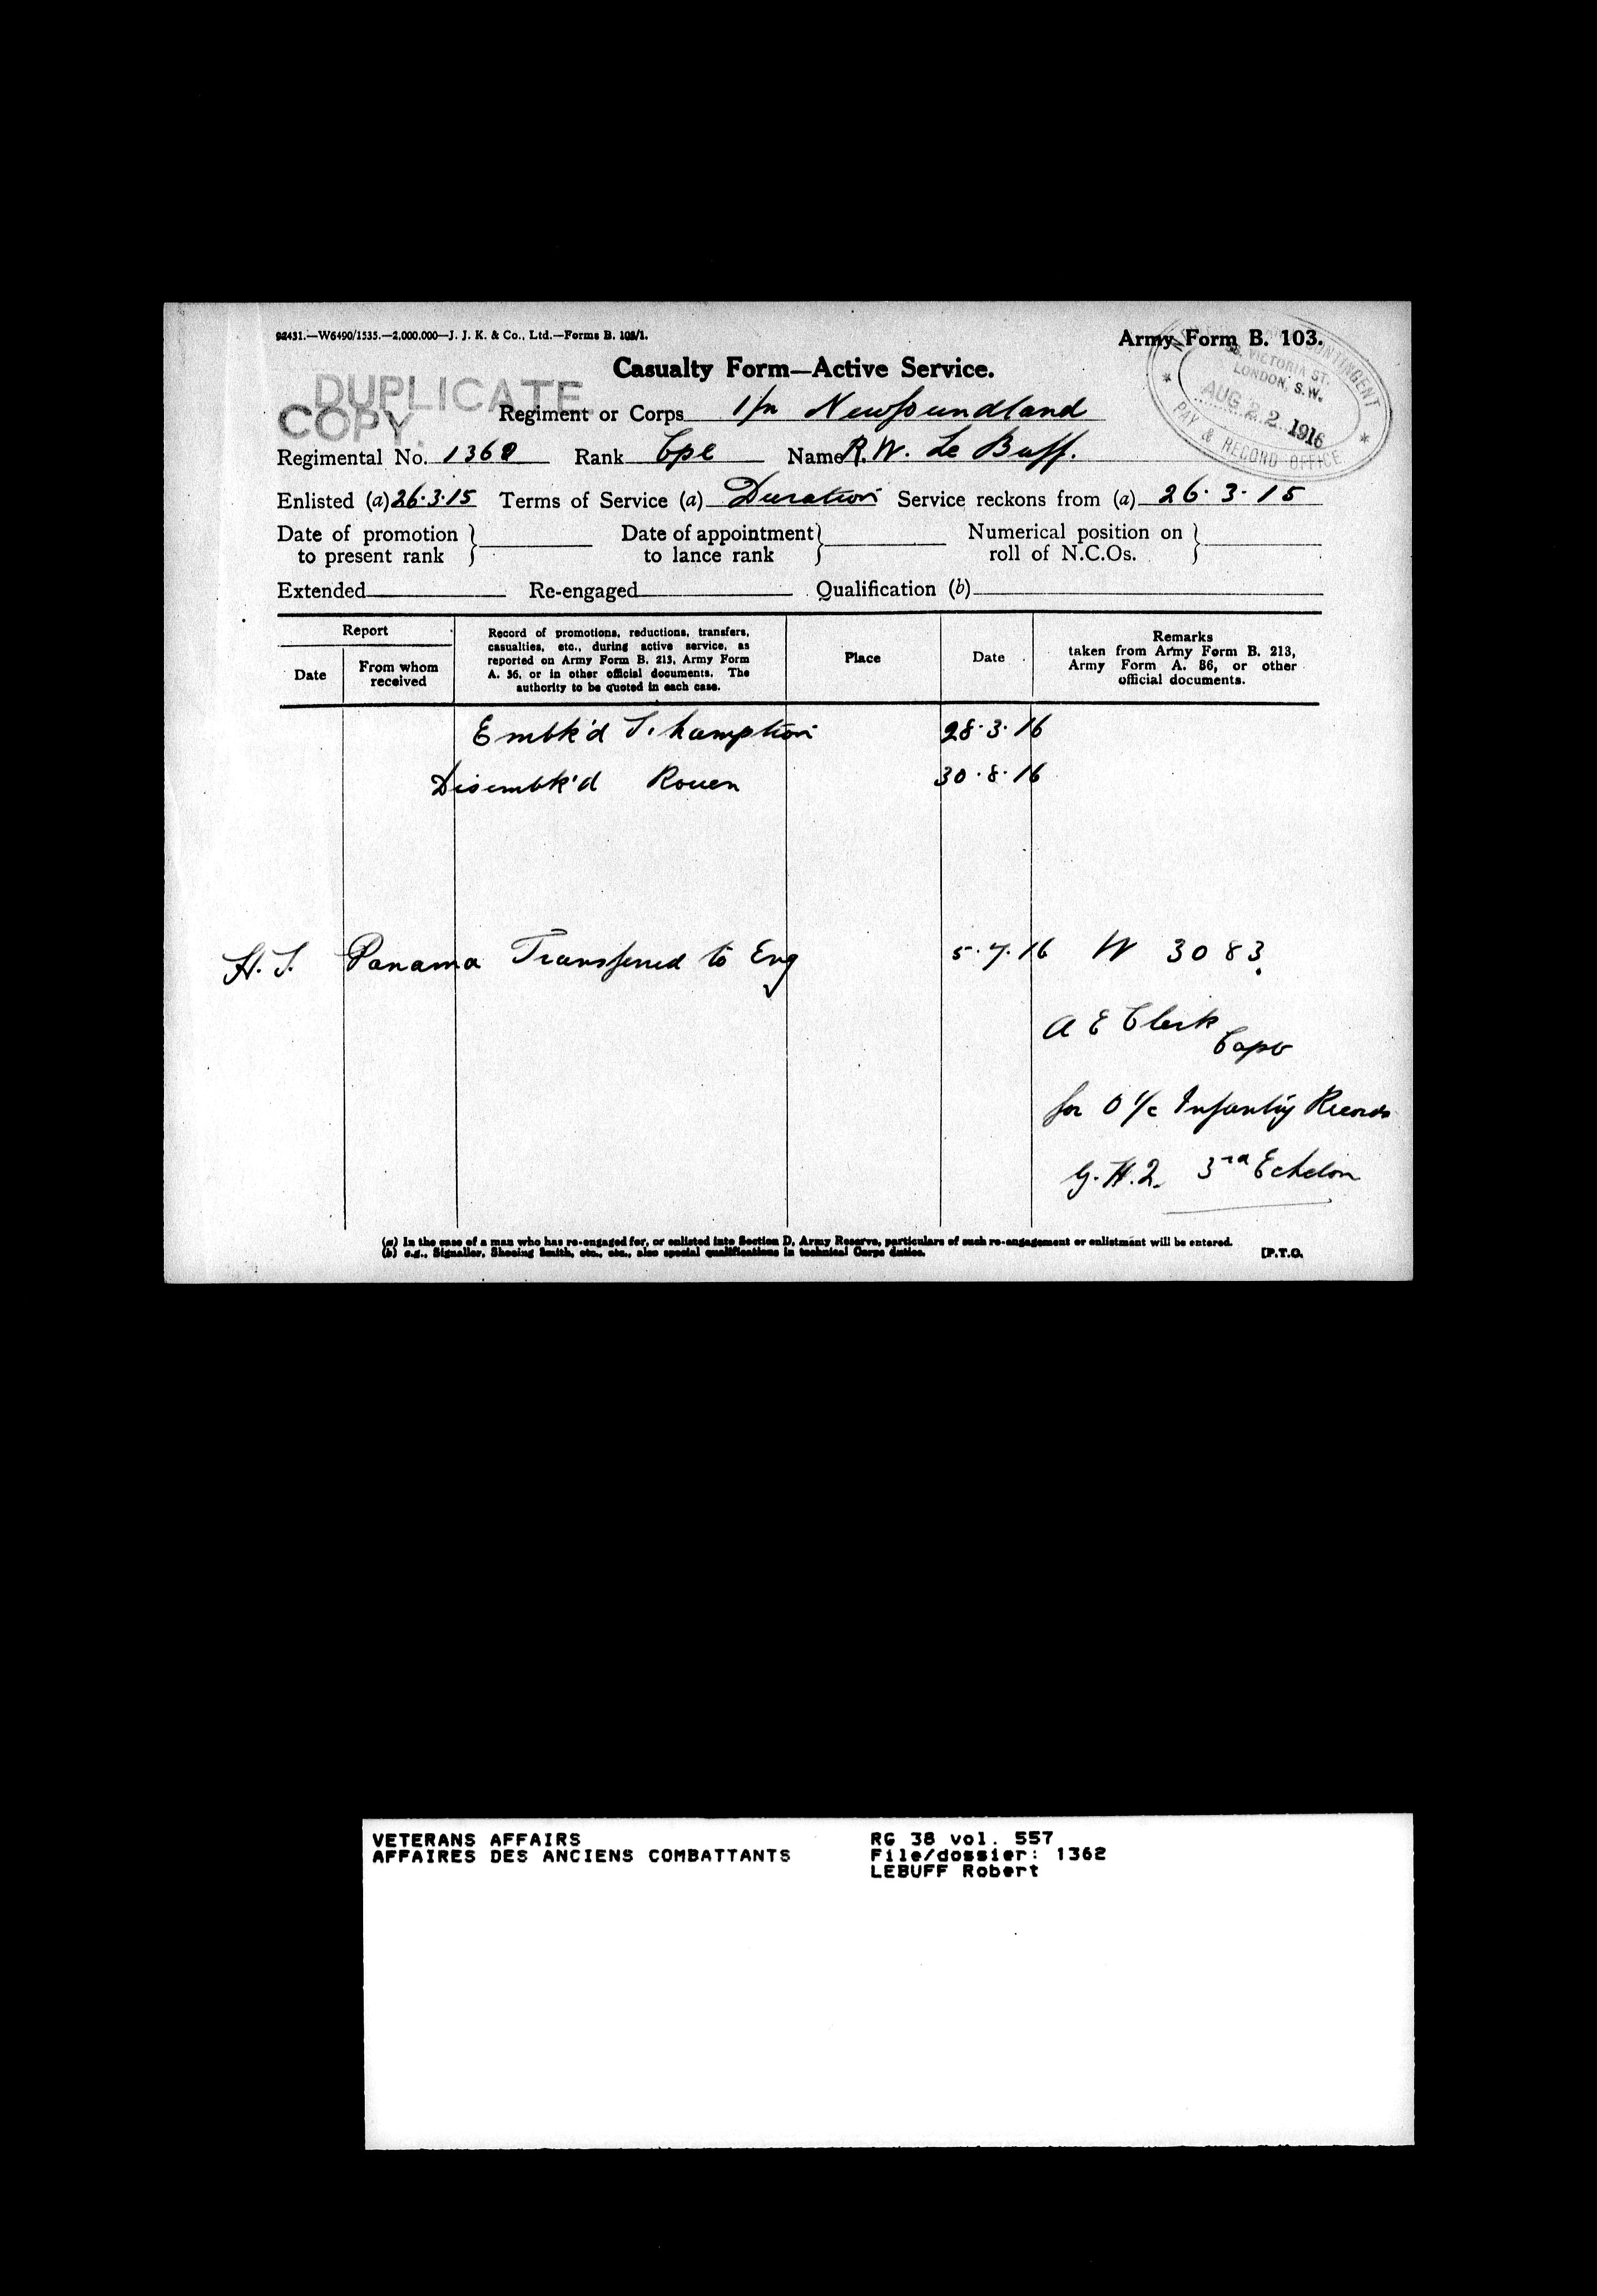 92431.—W6490/1535.—2,000,000—J. J. K. & Co., Ltd.—Forms B. 103/1.
Army Form B. 103.
Casualty Form—Active Service.
DUPLICATE
COPY.
CONTINGENT
58, VICTORIA ST.
LONDON, S.W.
AUG 22 1916
PAY & RECORD OFFICE
Regiment or Corps 1/n Newfoundland
Regimental No. 1362 Rank Cpl Name R. W. Le Buff.
Enlisted (a) 26.3.15 Terms of Service (a) Duration Service reckons from (a) 26.3.15
Date of promotion to present rank } Date of appointment to lance rank } Numerical position on roll of N.C.Os. }
Extended Re-engaged Qualification (b)
Report
Date
From whom received
Record of promotions, reductions, transfers,
casualties, etc., during active service, as
reported on Army Form B. 213, Army Form
A. 36, or in other official documents. The
authority to be quoted in each case.
Place
Date
Remarks
taken from Army Form B. 213,
Army Form A. 36, or other
official documents.
Embk'd S. hampton 28.3.16
Disembk'd Rouen 30.8.16
H.S. Panama Transferred to Eng 5.7.16 W 3083.
A E Clerk
Capt
for O i/c Infantry Records
G.H.Q. 3rd Echelon
(a) In the case of a man who has re-engaged for, or enlisted into Section D, Army Reserve, particulars of such re-engagement or enlistment will be entered.
(b) e.g., Signaller, Shoeing Smith, etc., etc., also special qualifications in technical Corps duties.
[P.T.O.
VETERANS AFFAIRS
AFFAIRES DES ANCIENS COMBATTANTS
RG 38 vol. 557
File/dossier: 1362
LEBUFF Robert